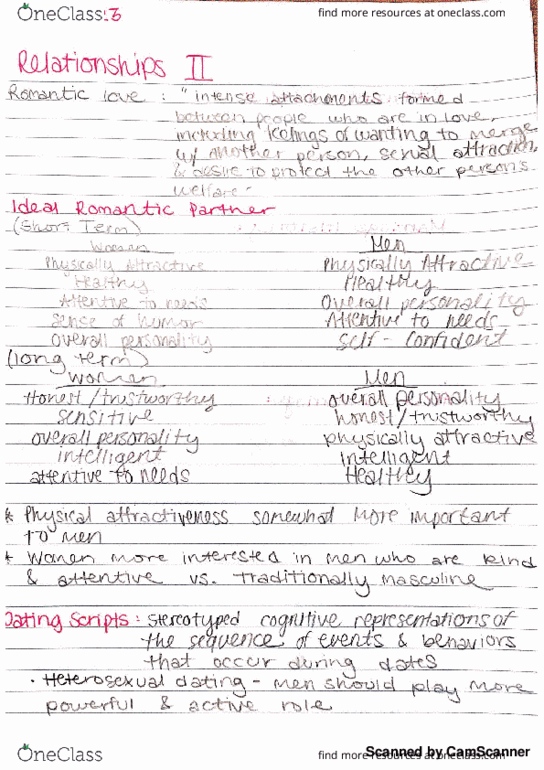 OneClass:3 find more resources at oneclass.com
Relationships II
Romantic love : "intense attachments formed
between people who are in love,
including feelings of wanting to merge
w/ another person, sexual attraction,
& desire to protect the other person's
welfare-
Ideal Romantic Partner
(Short Term)
Women Men
Physically Attractive Physically Attractive
Healthy Healthy
Attentive to needs Overall personality
sense of humor Attentive to needs
overall personality self-confident
(long term)
women Men
Honest/trustworthy overall personality
sensitive honest/trustworthy
overall personality physically attractive
intelligent intelligent
attentive to needs Healthy
* Physical attractiveness somewhat more important
to men
* Women more interested in men who are kind
& attentive vs. traditionally masculine
Dating Scripts: stereotyped cognitive representations of
the sequence of events & behaviors
that occur during dates
· Heterosexual dating - men should play more
powerful & active role
OneClass find more resources at oneclass.com
Scanned by CamScanner